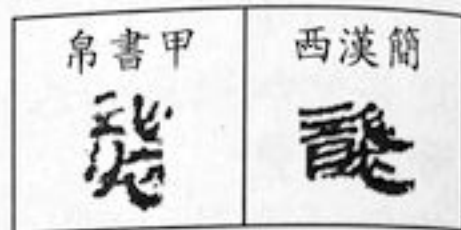 帛書甲
西漢簡